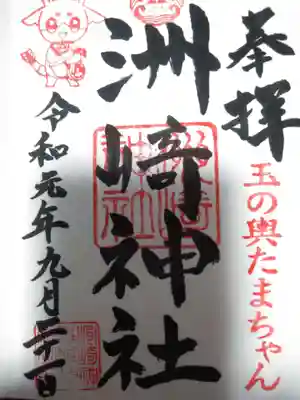 奉拝
玉の輿たまちゃん
洲崎神社
令和元年九月二十一日